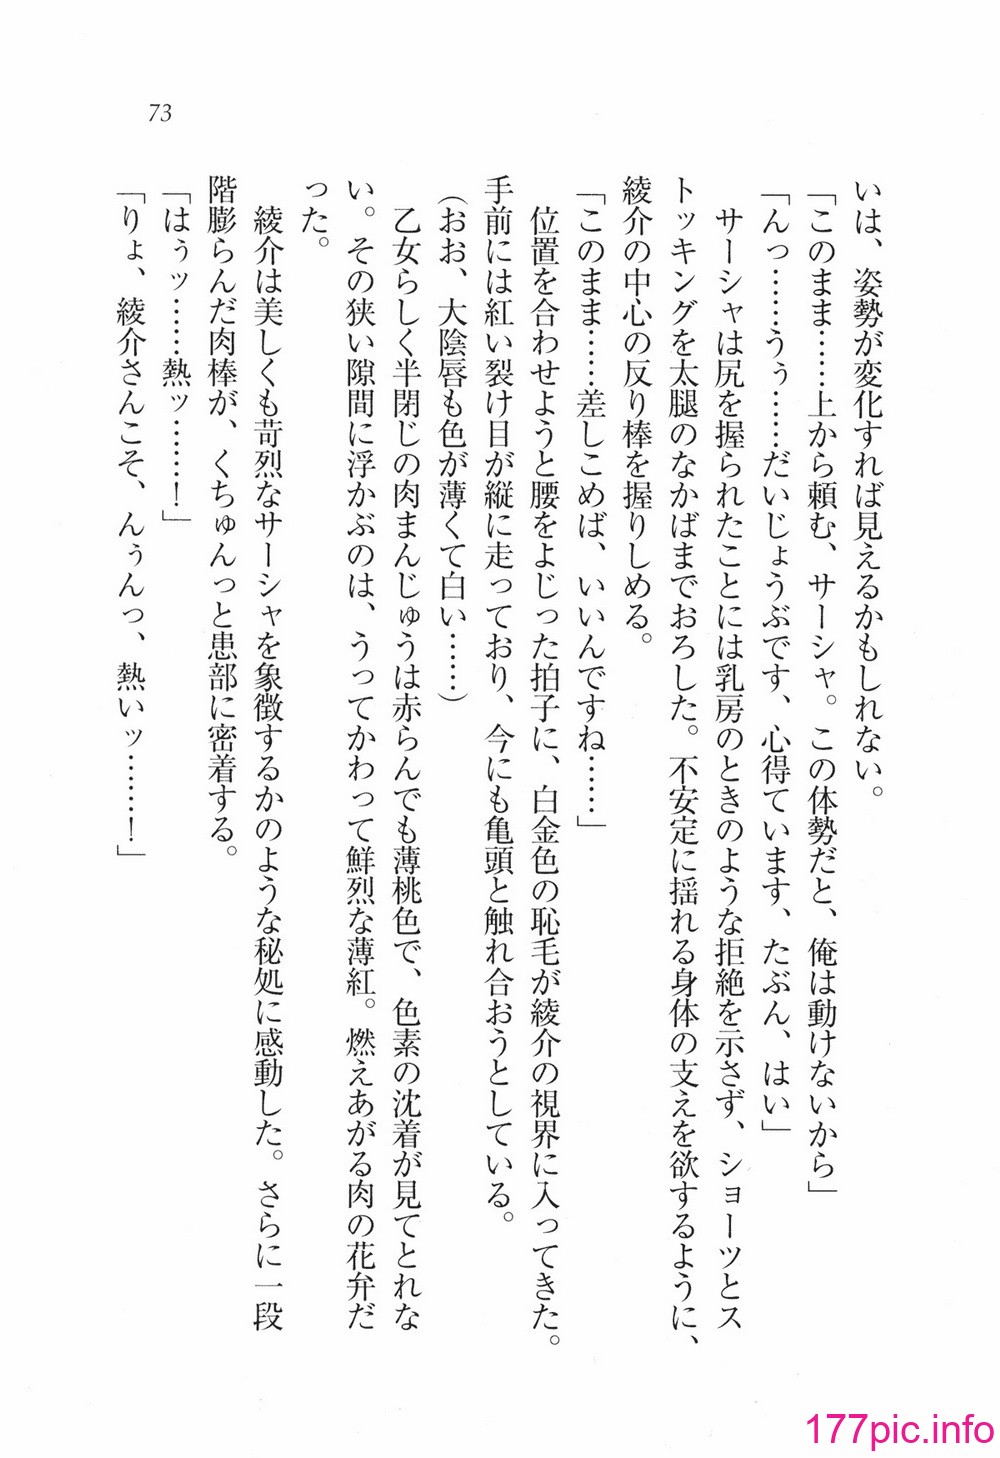 73
いは、姿勢が変化すれば見えるかもしれない。
「このまま……上から頼む、サーシャ。この体勢だと、俺は動けないから」
「んっ……うぅ……だいじょうぶです、心得ています、たぶん、はい」
サーシャは尻を握られたことには乳房のときのような拒絶を示さず、ショーツとス
トッキングを太腿のなかばまでおろした。不安定に揺れる身体の支えを欲するように、
綾介の中心の反り棒を握りしめる。
「このまま……差しこめば、いいんですね……」
位置を合わせようと腰をよじった拍子に、白金色の恥毛が綾介の視界に入ってきた。
手前には紅い裂け目が縦に走っており、今にも亀頭と触れ合おうとしている。
(おお、大陰唇も色が薄くて白い……)
乙女らしく半閉じの肉まんじゅうは赤らんでも薄桃色で、色素の沈着が見てとれな
い。その狭い隙間に浮かぶのは、うってかわって鮮烈な薄紅。燃えあがる肉の花弁だ
った。
綾介は美しくも苛烈なサーシャを象徴するかのような秘処に感動した。さらに一段
階膨らんだ肉棒が、くちゅんっと患部に密着する。
「はぅッ……熱ッ……！」
「りょ、綾介さんこそ、んぅんっ、熱いッ……！」
177pic.info